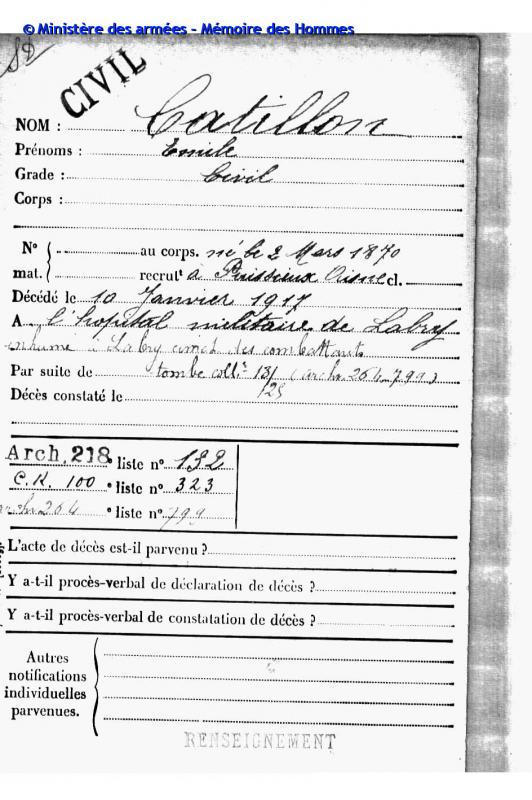 © Ministère des armées - Mémoire des Hommes
CIVIL
NOM : Catillon
Prénoms : Emile
Grade : Civil
Corps :
N° au corps. né le 2 Mars 1870
mat. recrut^t à Puissieux Aisne cl.
Décédé le 10 Janvier 1917
A l'hopital militaire de Labry
inhumé à Labry cimet. des combattants
Par suite de tombe coll. 131 (arch. 264_799)
/25
Décès constaté le
Arch. 218 • liste n° 132
C.R. 100 • liste n° 323
arch. 264 • liste n° 799
L'acte de décès est-il parvenu ?
Y a-t-il procès-verbal de déclaration de décès ?
Y a-t-il procès-verbal de constatation de décès ?
Autres
notifications
individuelles
parvenues.
RENSEIGNEMENT